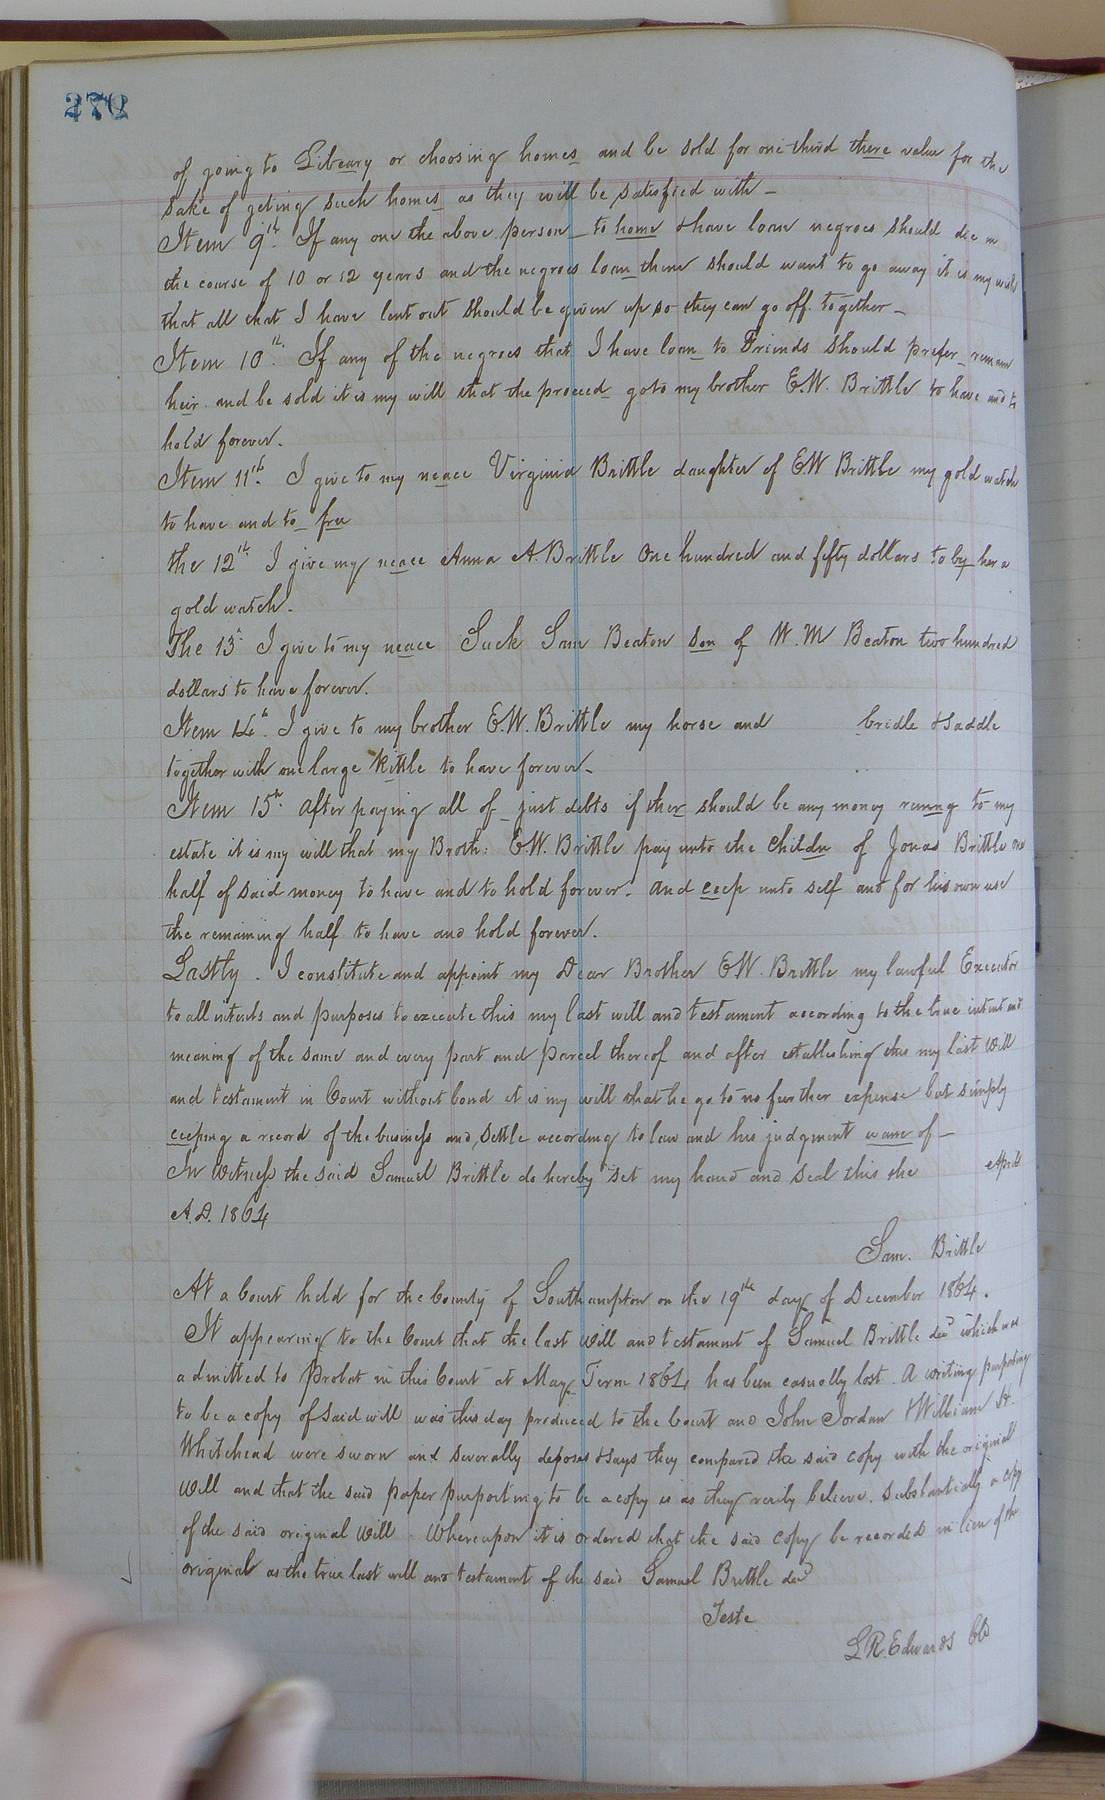 270
of going to Libeary or choosing homes and be sold for one third there value for the
sake of geting such homes as they will be satisfied with -
Item 9th. If any one the above person to home I have loan negroes should die in
the course of 10 or 12 years and the negroes loan them should want to go away it is my wish
that all that I have lent out should be given up so they can go off together -
Item 10th. If any of the negroes that I have loan to Friends should prefer remain
heir and be sold it is my will that the proceed go to my brother E.W. Brittle to have and to
hold forever.
Item 11th. I give to my neace Virginia Brittle daughter of E.W Brittle my gold watch
to have and to fru
the 12th I give my neace Anna A. Brittle One hundred and fifty dollars to by her a
gold watch.
The 13th I give to my neace Suck Sam Beaton Son of W. M Beaton two hundred
dollars to have forever.
Item 14th. I give to my brother E.W. Brittle my horse and bridle & Saddle
together with one large kittle to have forever -
Item 15th. After paying all of just debts if ther should be any money remng to my
estate it is my will that my Broth: E.W. Brittle pay unto the childn of Jonas Brittle one
half of said money to have and to hold forever. and ceep unto self and for his own use
the remaining half to have and hold forever.
Lastly. I constitute and appoint my Dear Brother E.W. Brittle my lawful Executor
to all intents and purposes to execute this my last will and testament according to the true intent and
meaning of the same and every part and parcel thereof and after establishing this my last Will
and testament in Court without bond it is my will that he go to no further expense but simply
ceeping a record of the business and settle according to law and his judgment of -
In witness the said Samuel Brittle do hereby set my hand and seal this the April
A.D. 1864
Sam. Brittle
At a Court held for the County of Southampton on the 19th day of December 1864.
It appearing to the Court that the last will and testament of Samuel Brittle decd which was
admitted to Probat in this Court at May Term 1864 has been casually lost. A writing purporting
to be a copy of said will was this day produced to the Court and John Jordan & William H.
Whitehead were sworn and severally deposes & says they compared the said copy with the original
Will and that the said paper purporting to be a copy is as they verily believe, substantially a copy
of the said original Will. Whereupon it is ordered that the said copy be recorded in lieu of the
original as the true last will and testament of the said Samuel Brittle decd
Teste
L.R. Edwards Clk